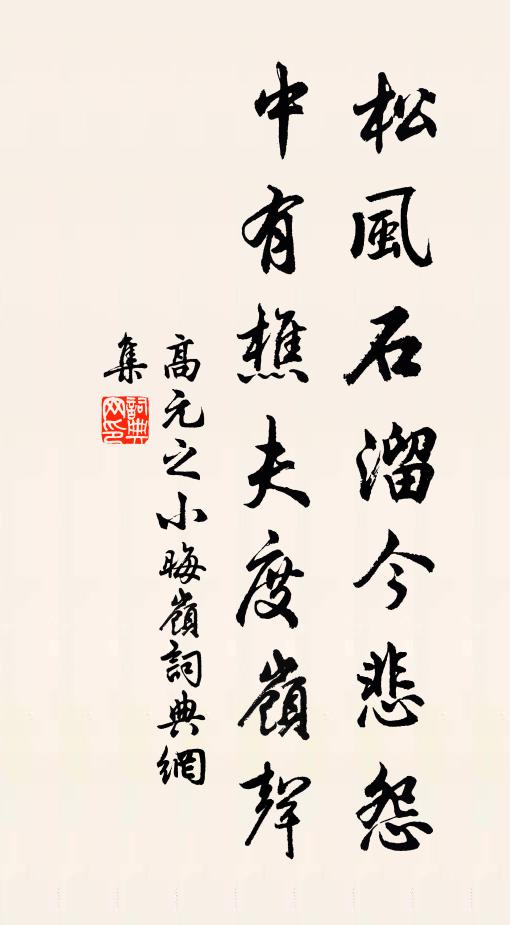 松風石溜今悲怨
中有樵夫度嶺聲
高元之小晦嶺詞典網
集
詞典
网印